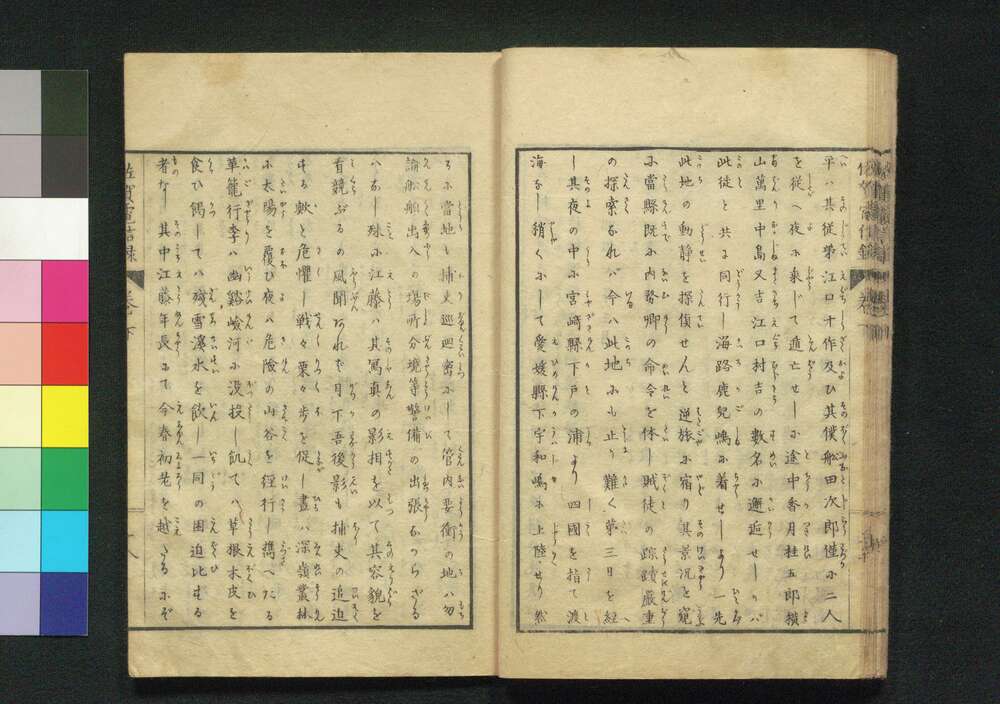 平ハ其従弟江口十作及ひ其僕舩田次郎僅ふ二人
を従へ夜ふ乗じて遁亡せしふ途中香月桂五郎横
山萬里中島又吉江口村吉の數名ふ邂逅せしかバ
此徒と共に同行し海路鹿児嶋ふ着せしより一先
此地の動静を探偵せんと逆旅ふ宿り其景況を窺
ふ當縣既ふ内務卿の命令を体し賊徒の踪蹟嚴重
の探索なれバ今ハ此地ふも止り難く第三日を経
し其夜の中ふ宮﨑縣下戸の浦より四國を指て渡
海なし稍くふして愛媛縣下宇和嶋ふ上陸せり然
るふ當地も捕吏巡𢌞密ふして管内要衝の地ハ勿
論舩舶出入の場所分境等警備の出張なつらざる
ハなし殊ふ江藤ハ其冩真の影相を以て其容貌を
看競ぶるの風聞あれで月下吾後影も捕吏の追迫
する歟と危懼し戦々栗々歩を促し晝ハ深嶺叢林
ふ太陽を覆ひ夜ハ危險の山谷を経行し携へたる
革籠行李ハ幽谿嶮河ふ没投し飢てハ草根木皮を
食ひ餲してハ殘雪溪水を飲し一同の困迫比する
者なし其中江藤年長にて今春初老を越さるふぞ
佐賀電信録 巻下 十八